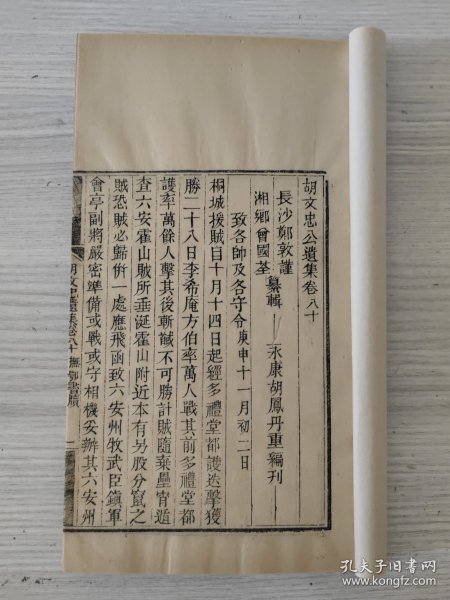 胡文忠公遺集卷八十
長沙鄭敦謹
湘鄉曾國荃
纂輯
永康胡鳳丹重編刊
致各帥及各守令庚申十一月初二日
桐城援賊自十月十四日起經多禮堂都護迭擊獲
勝二十八日李希庵方伯率萬人戰其前多禮堂都
護率萬餘人擊其後斬馘不可勝計賊隨棄壘宵遁
查六安霍山賊所垂涎霍山附近本有另股分竄之
賊恐賊必歸併一處應飛函致六安州牧武臣鎭軍
會亭副將嚴密準備或戰或守相機妥辦其六安州
胡文忠遺集卷八十 撫鄂書牘
孔夫子旧书网
www.kongfz.com